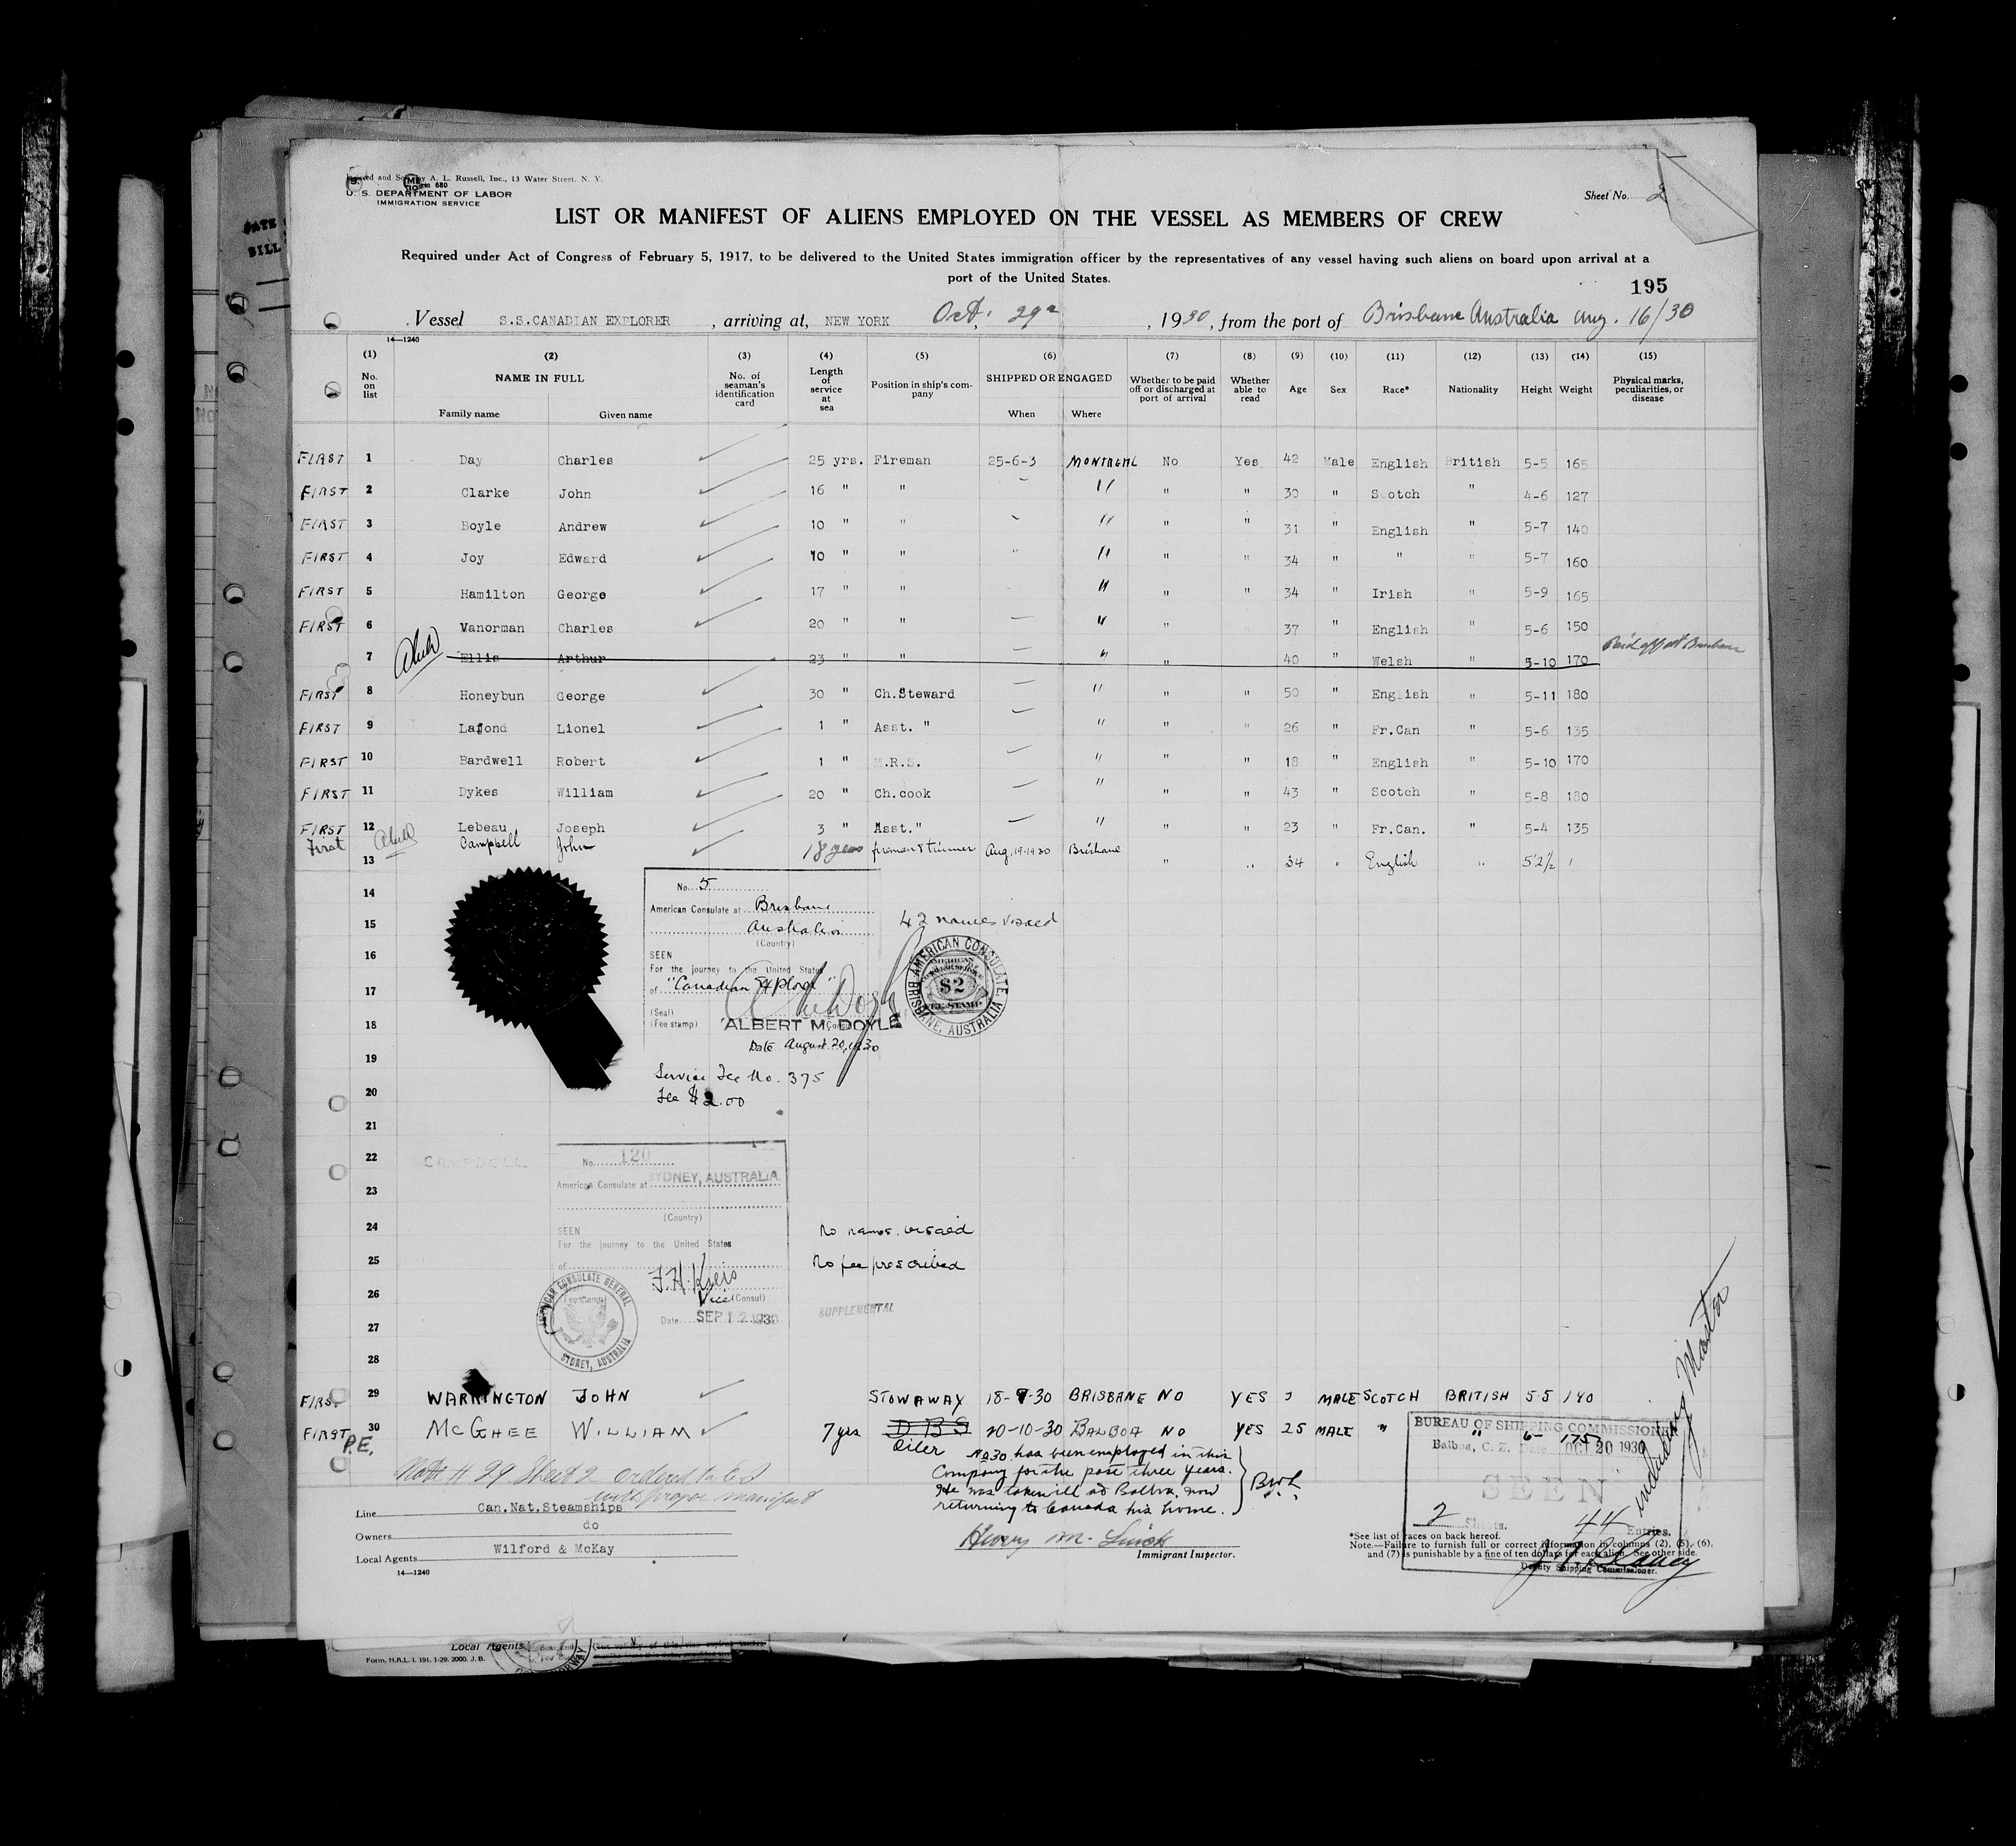 Printed and Sold by A. L. Russell, Inc., 13 Water Street, N. Y.
Form 680
U. S. DEPARTMENT OF LABOR
IMMIGRATION SERVICE
Sheet No. 2
LIST OR MANIFEST OF ALIENS EMPLOYED ON THE VESSEL AS MEMBERS OF CREW
Required under Act of Congress of February 5, 1917, to be delivered to the United States immigration officer by the representatives of any vessel having such aliens on board upon arrival at a
port of the United States.
195
Vessel S.S.CANADIAN EXPLORER, arriving at, NEW YORK Oct. 29, 1930, from the port of Brisbane Australia Aug. 16/30
14—1240
(1) (2) (3) (4) (5) (6) (7) (8) (9) (10) (11) (12) (13) (14) (15)
No. on list NAME IN FULL Family name Given name No. of seaman's identification card Length of service at sea Position in ship's company SHIPPED OR ENGAGED When Where Whether to be paid off or discharged at port of arrival Whether able to read Age Sex Race* Nationality Height Weight Physical marks, peculiarities, or disease
FIRST 1 Day Charles 25 yrs. Fireman 25-6-3 MONTREAL No Yes 42 Male English British 5-5 165
FIRST 2 Clarke John 16 " " " " " 30 " Scotch " 4-6 127
FIRST 3 Boyle Andrew 10 " " " " " 31 " English " 5-7 140
FIRST 4 Joy Edward 10 " " " " " " 34 " " " 5-7 160
FIRST 5 Hamilton George 17 " " " " " 34 " Irish " 5-9 165
FIRST 6 Vanorman Charles 20 " " " " 37 " English " 5-6 150
7 Ellis Arthur 23 " " " " 40 " Welsh " 5-10 170 Paid off at Brisbane
FIRST 8 Honeybun George 30 " Ch.Steward " " " 50 " English " 5-11 180
FIRST 9 Lafond Lionel 1 " Asst. " " " " 26 " Fr.Can " 5-6 135
FIRST 10 Bardwell Robert 1 " M.R.S. " " " 18 " English " 5-10 170
FIRST 11 Dykes William 20 " Ch.cook " " " 43 " Scotch " 5-8 180
FIRST 12 Lebeau Joseph 3 " Asst." " " " 23 " Fr.Can. " 5-4 135
First 13 Campbell John 18 years fireman & trimmer Aug. 19-1930 Brisbane " " 34 " English " 5'2½
14
No. 5
American Consulate at Brisbane
15
Australia
(Country)
42 names visaed
16
SEEN
For the journey to the United States
17
of "Canadian Explorer"
(Seal)
(Fee stamp)
18
ALBERT M. DOYLE
(Consul)
Date August 20, 1930
AMERICAN CONSULATE, BRISBANE, AUSTRALIA
AMERICAN
$2
FEE STAMP
19
Service Fee No. 375
20
Fee $2.00
21
22
CAMPBELL
No. 120
23
American Consulate at SYDNEY, AUSTRALIA.
(Country)
24
SEEN
No names visaed
For the journey to the United States
25
of
No fee prescribed
26
F.H. Kreis
Vice (Consul)
AMERICAN CONSULATE GENERAL SYDNEY, AUSTRALIA
27
Date SEP 12 1930
SUPPLEMENTAL
28
FIRST 29 WARRINGTON JOHN STOWAWAY 18-9-30 BRISBANE NO YES MALE SCOTCH BRITISH 5-5 140
FIRST 30 McGHEE WILLIAM 7 yrs DBS Oiler 20-10-30 BALBOA NO YES 25 MALE " " 6- 175
P.E.
No 30 has been employed in this
Company for the past three years.
He was taken ill at Balboa, now
returning to Canada his home.
BUREAU OF SHIPPING COMMISSIONER
Balboa, C. Z. Date OCT 20 1930
SEEN
2 Sheets. 44 Entries.
including Master
Deputy Shipping Commissioner.
Note # 29 Sheet 2 ordered
with proper manifest
Line Can.Nat.Steamships
Owners do
Local Agents Wilford & McKay
14—1240
Immigrant Inspector.
*See list of races on back hereof.
Note.—Failure to furnish full or correct information in columns (2), (5), (6),
and (7) is punishable by a fine of ten dollars for each alien. See other side.
Local Agents
Form, H.A.L. I. 191. 1-29. 2000. J. B.